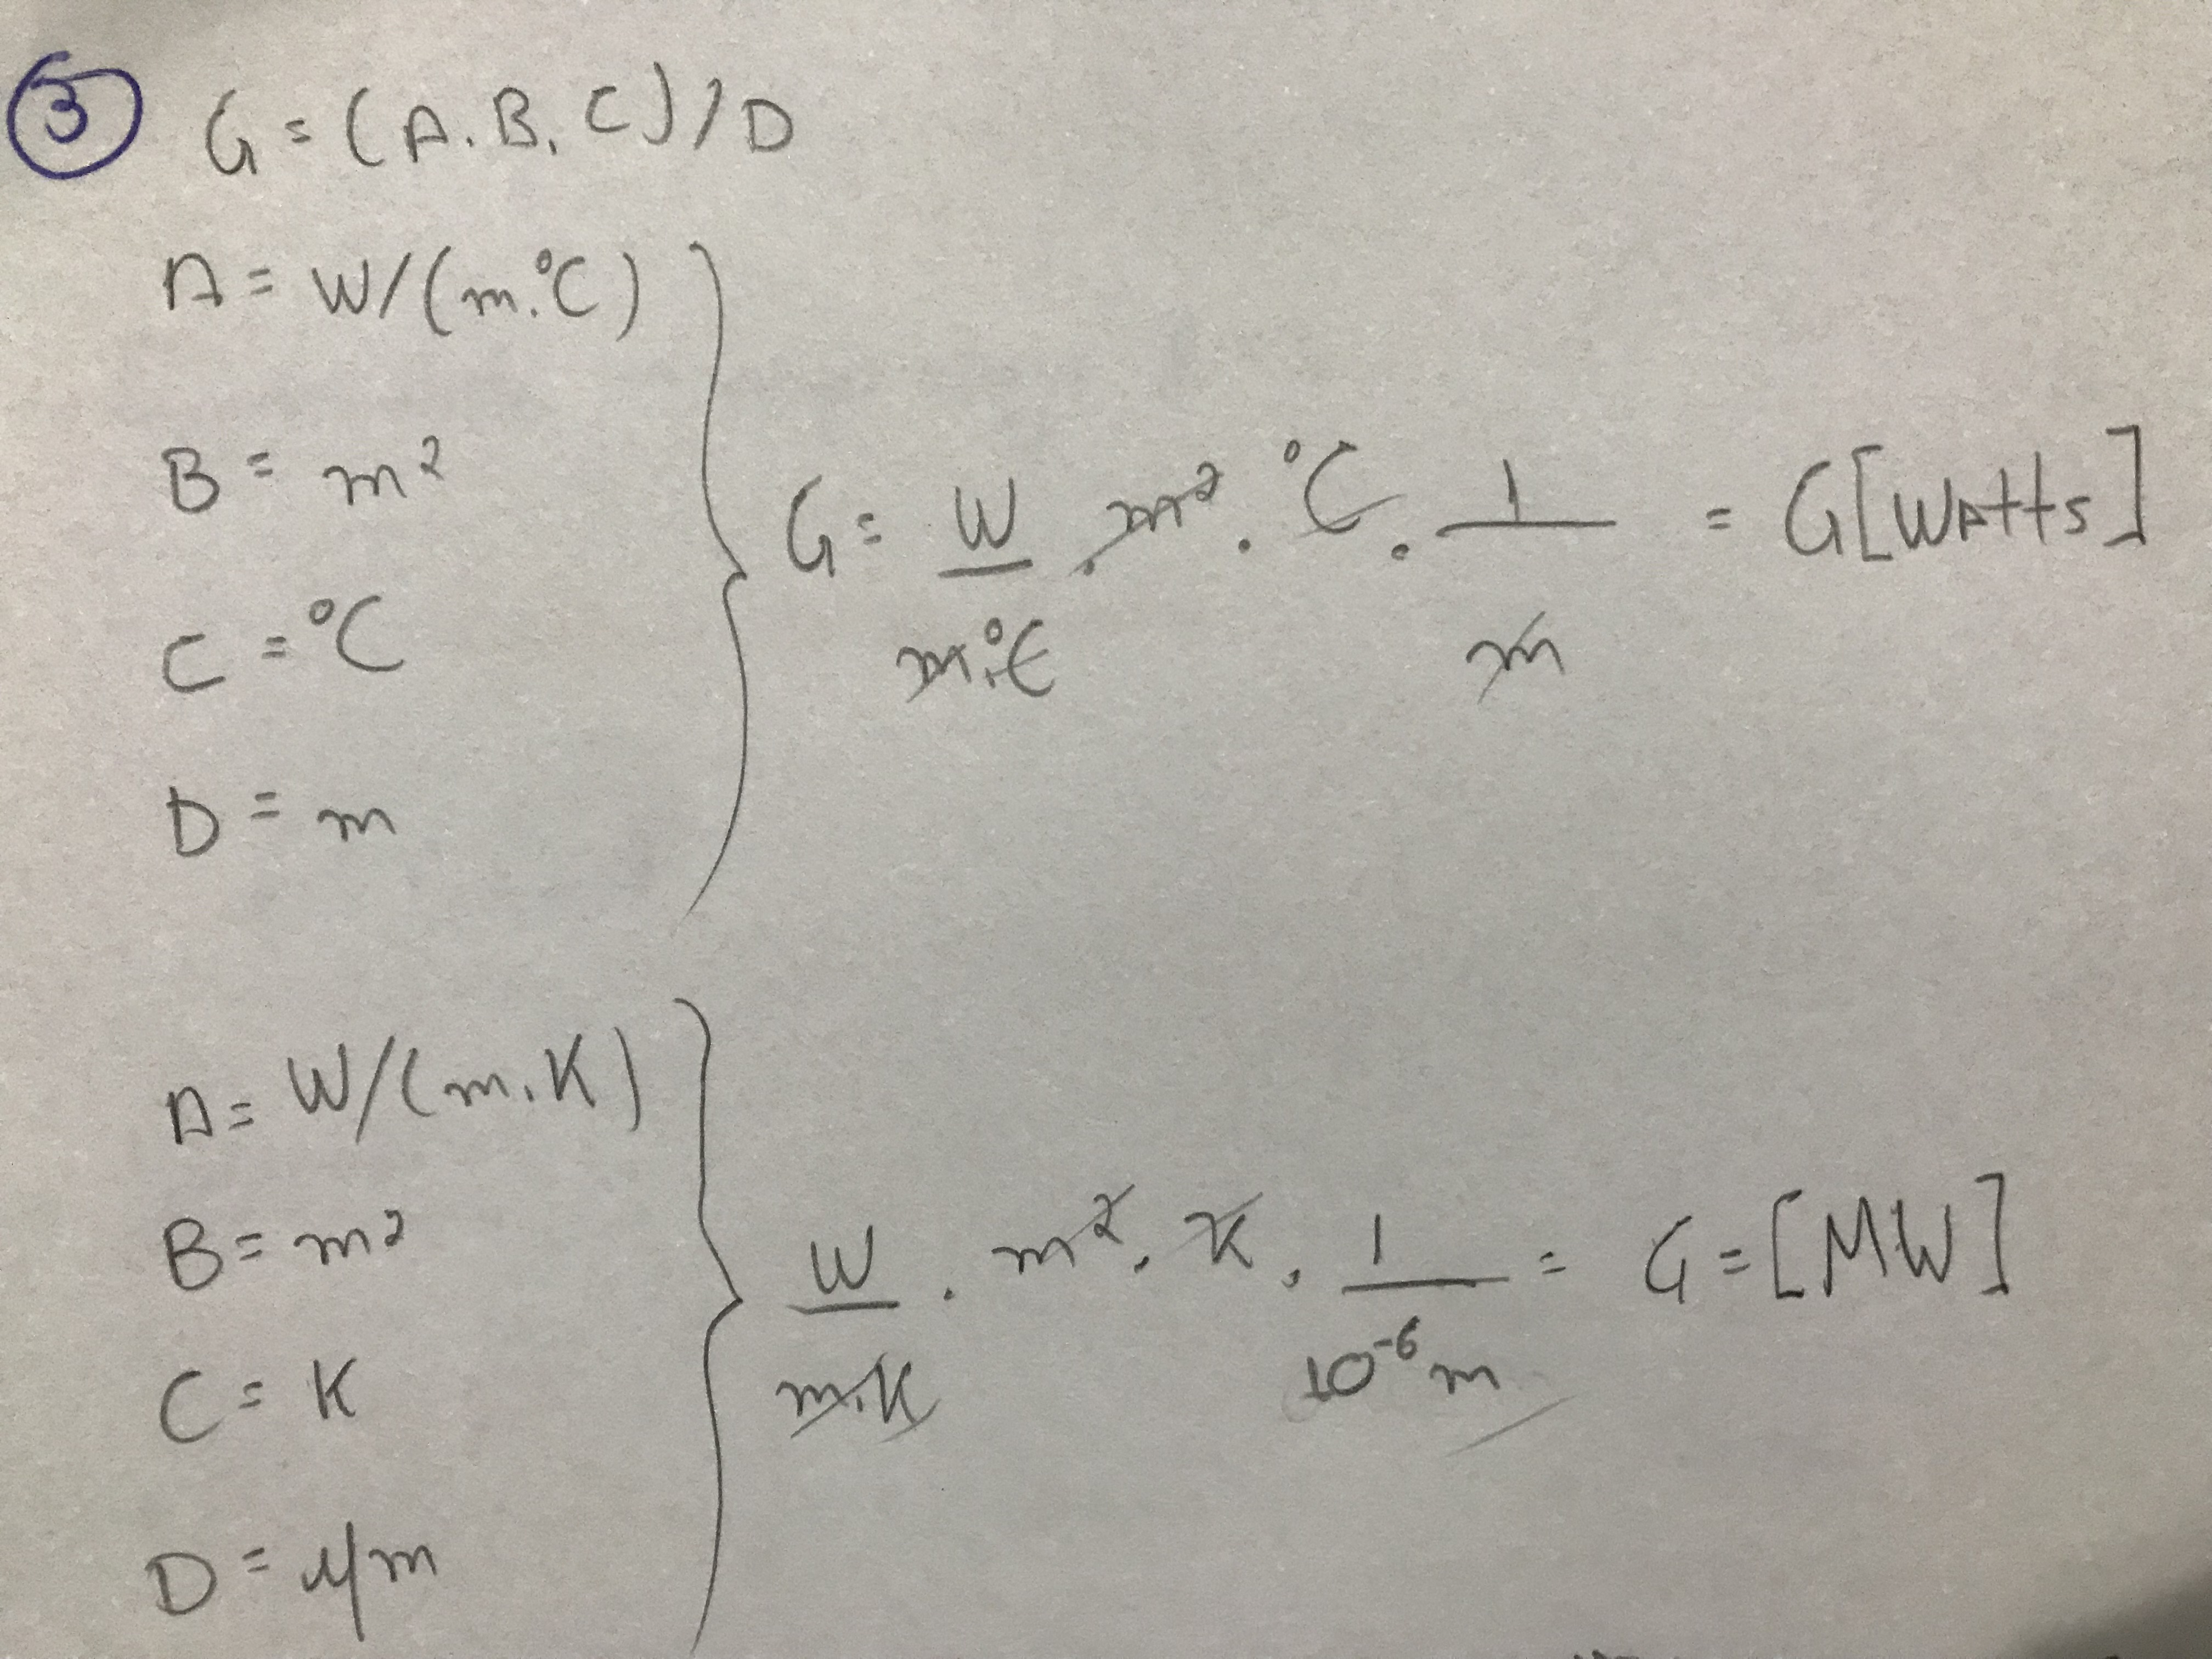 3 G = (A.B.C)/D
A = W/(m.°C)
B = m²
C = °C
D = m
G = W/m.°C . m² . °C . 1/m = G[Watts]
A = W/(m.K)
B = m²
C = K
D = μm
W/m.K . m² . K . 1/10⁻⁶m = G = [MW]